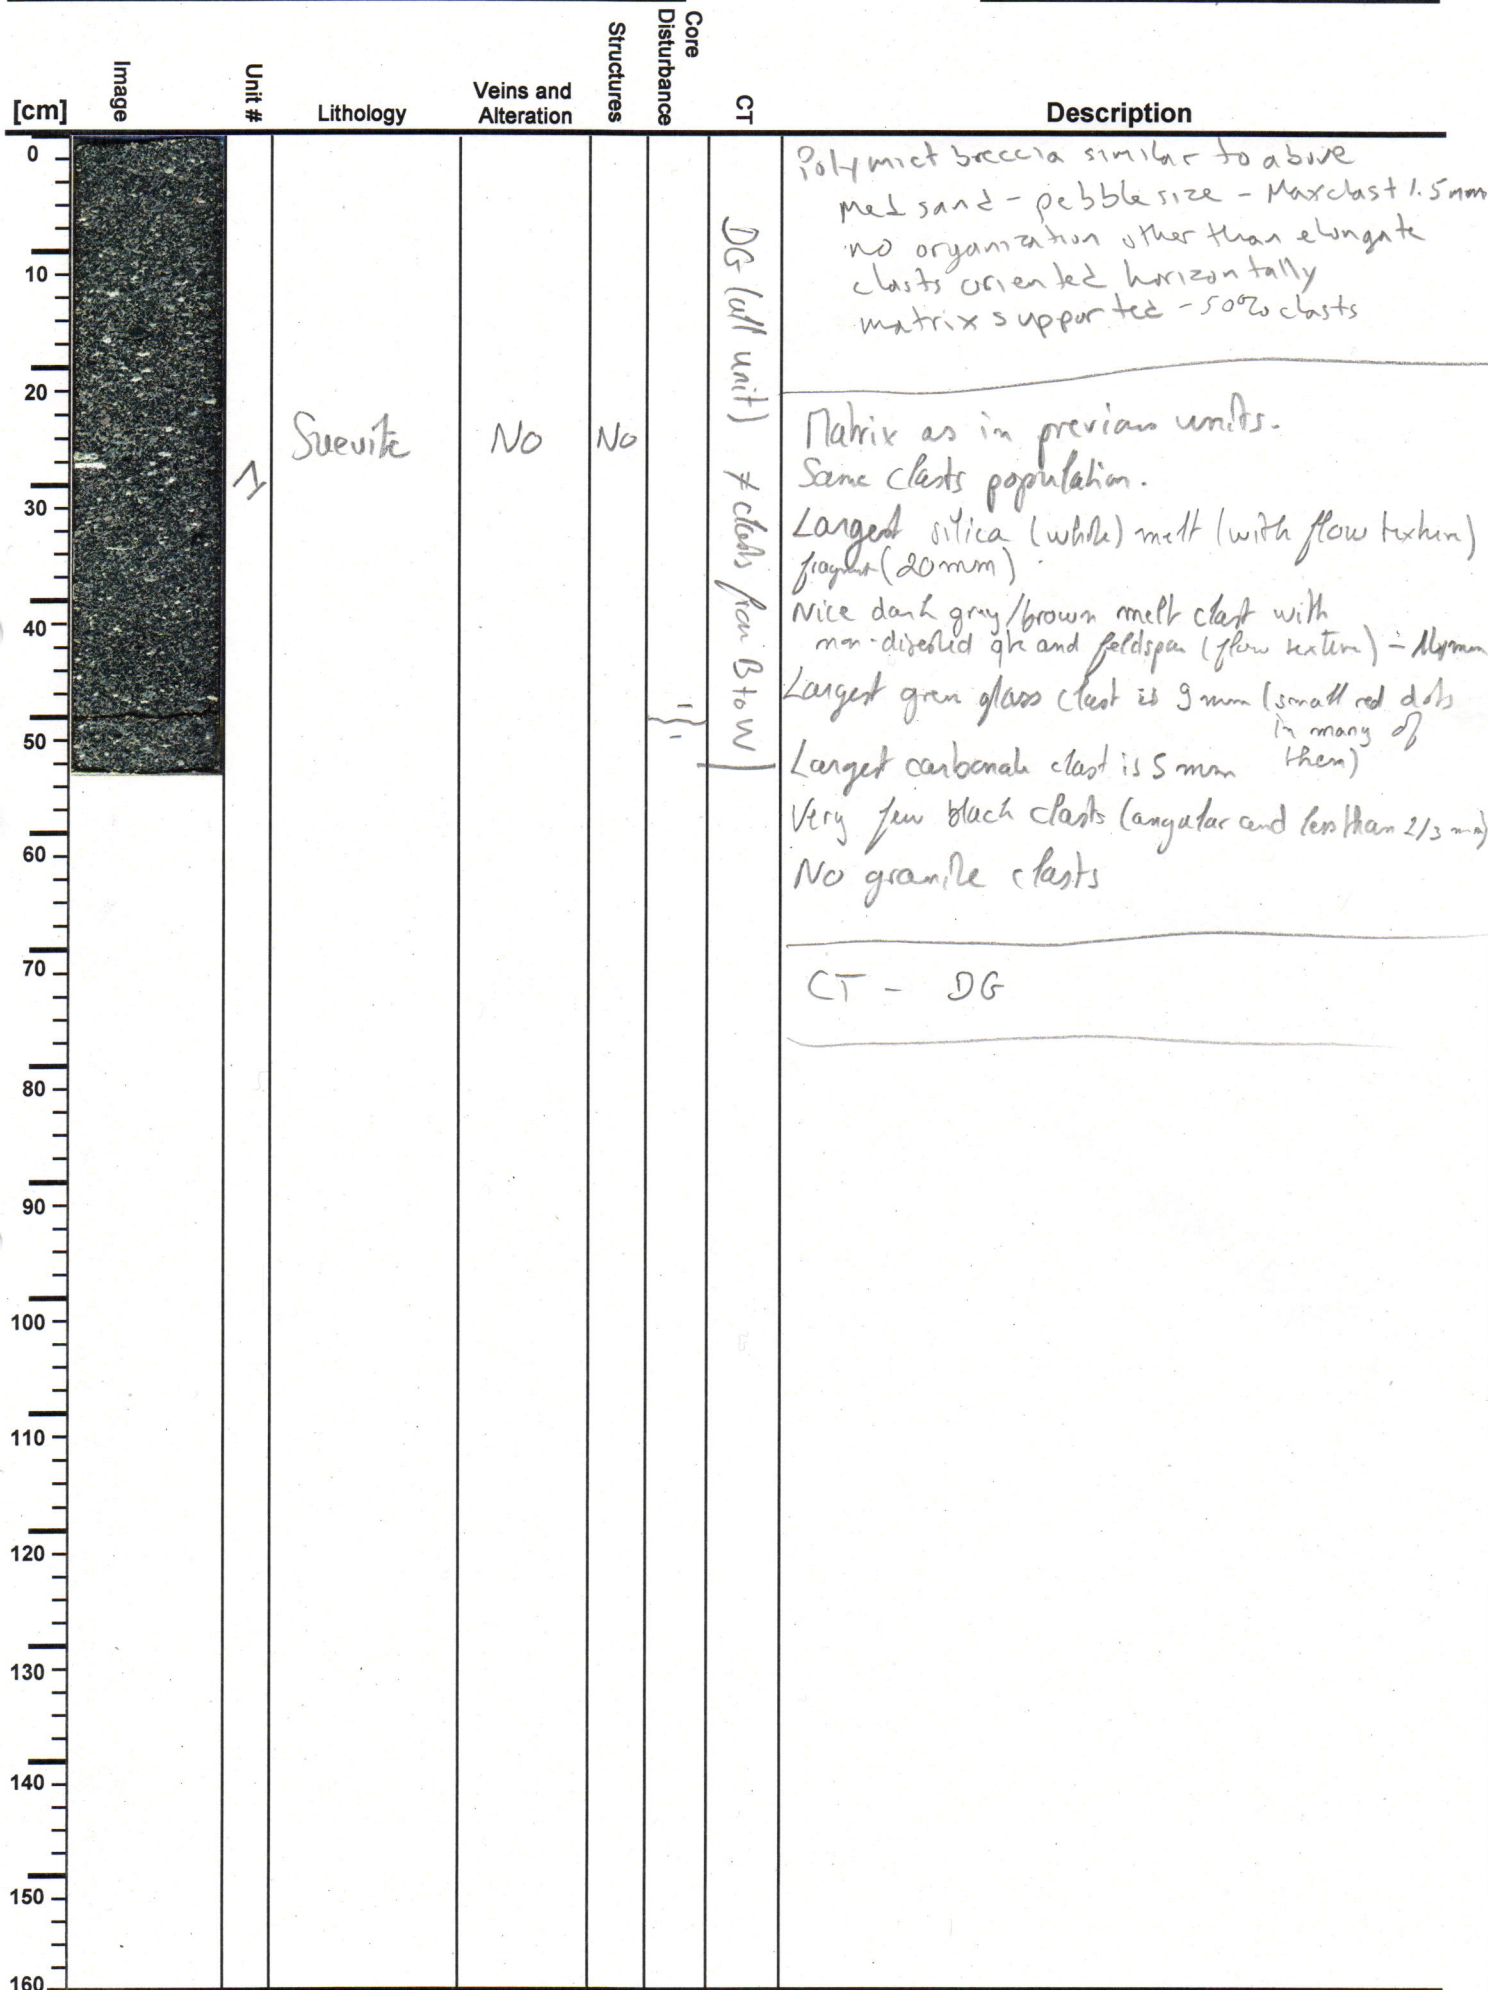 [cm]
Image
Unit #
Lithology
Veins and
Alteration
Structures
Core
Disturbance
CT
Description
0
10
20
30
40
50
60
70
80
90
100
110
120
130
140
150
160
1
Suevite
No
No
DG (all unit) ≠ clasts from B to W
Polymict breccia similar to above
med sand - pebble size - Max clast 1.5 mm
no organization other than elongate
clasts oriented horizontally
matrix supported - 50% clasts
Matrix as in previous units.
Same clasts population.
Largest silica (white) melt (with flow texture)
fragment (20mm)
Nice dark gray/brown melt clast with
and feldspar (flow texture) -
Largest green glass clast is 9 mm (small red dots
in many of
them)
Largest carbonate clast is 5 mm
Very few black clasts (angular and less than 2/3 mm)
No granite clasts
CT - DG